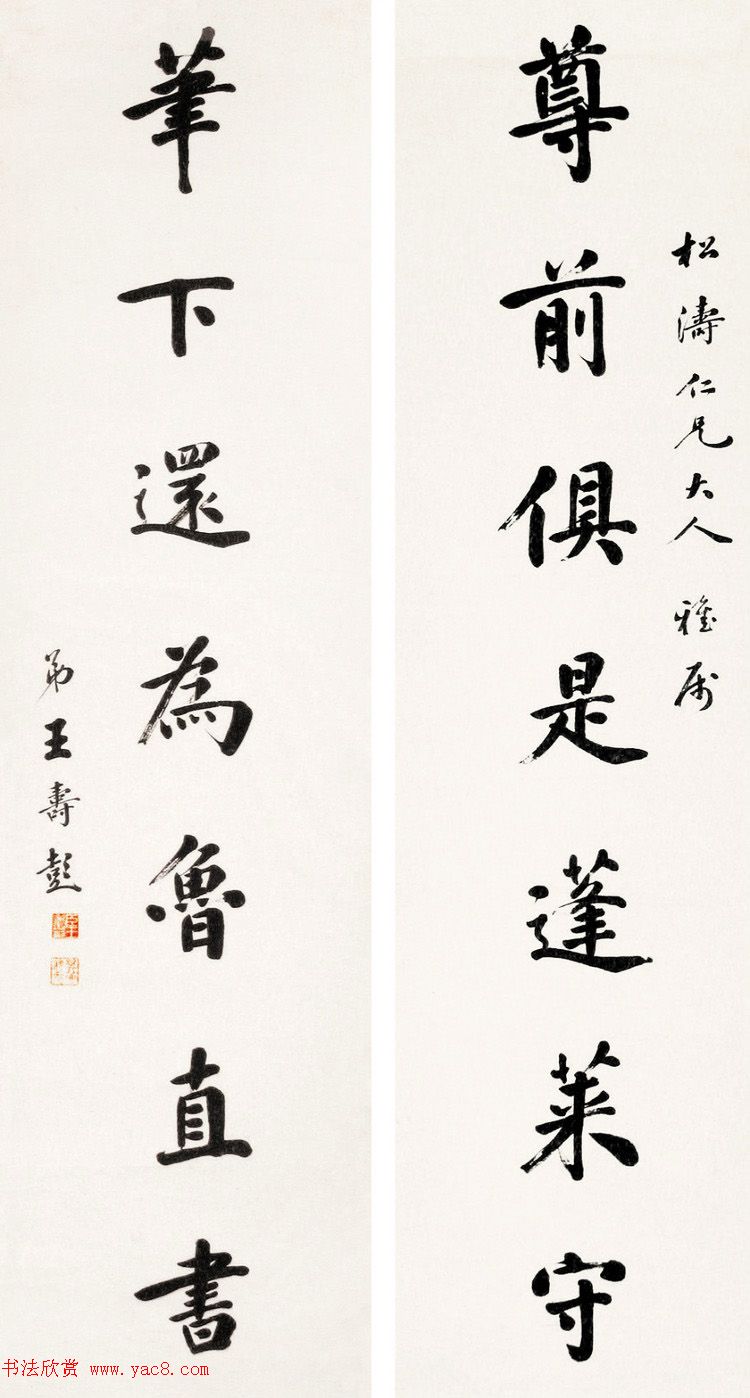 松濤仁兄大人雅属
尊前俱是蓬莱守
筆下還為魯直書
弟王壽彭
书法欣赏 www.yac8.com